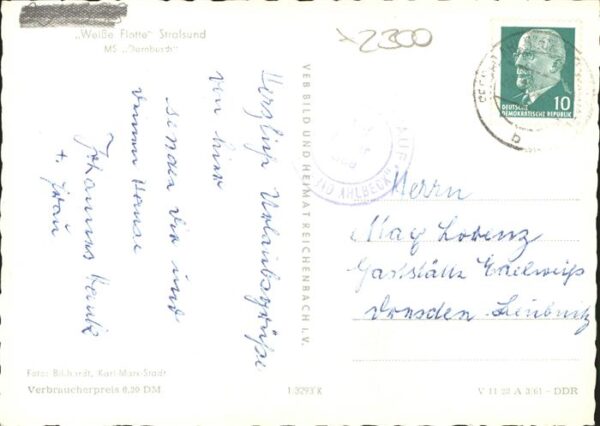 „Weiße Flotte" Stralsund
MS „Dornbusch"
x2300
DEUTSCHE
DEMOKRATISCHE REPUBLIK
10
b
AHLBECK
VEB BILD UND HEIMAT REICHENBACH I. V.
Herzliche Urlaubsgrüße
von hier
sendet Dir und
Deinem Hause
Johannes
u. Frau
Herrn
Max Lorenz
Gaststätte Edelweiß
Dresden Leubnitz
Foto: Bildhardt, Karl-Marx-Stadt
Verbraucherpreis 0,20 DM
1 3293 K
V 11 28 A 3/61 - DDR